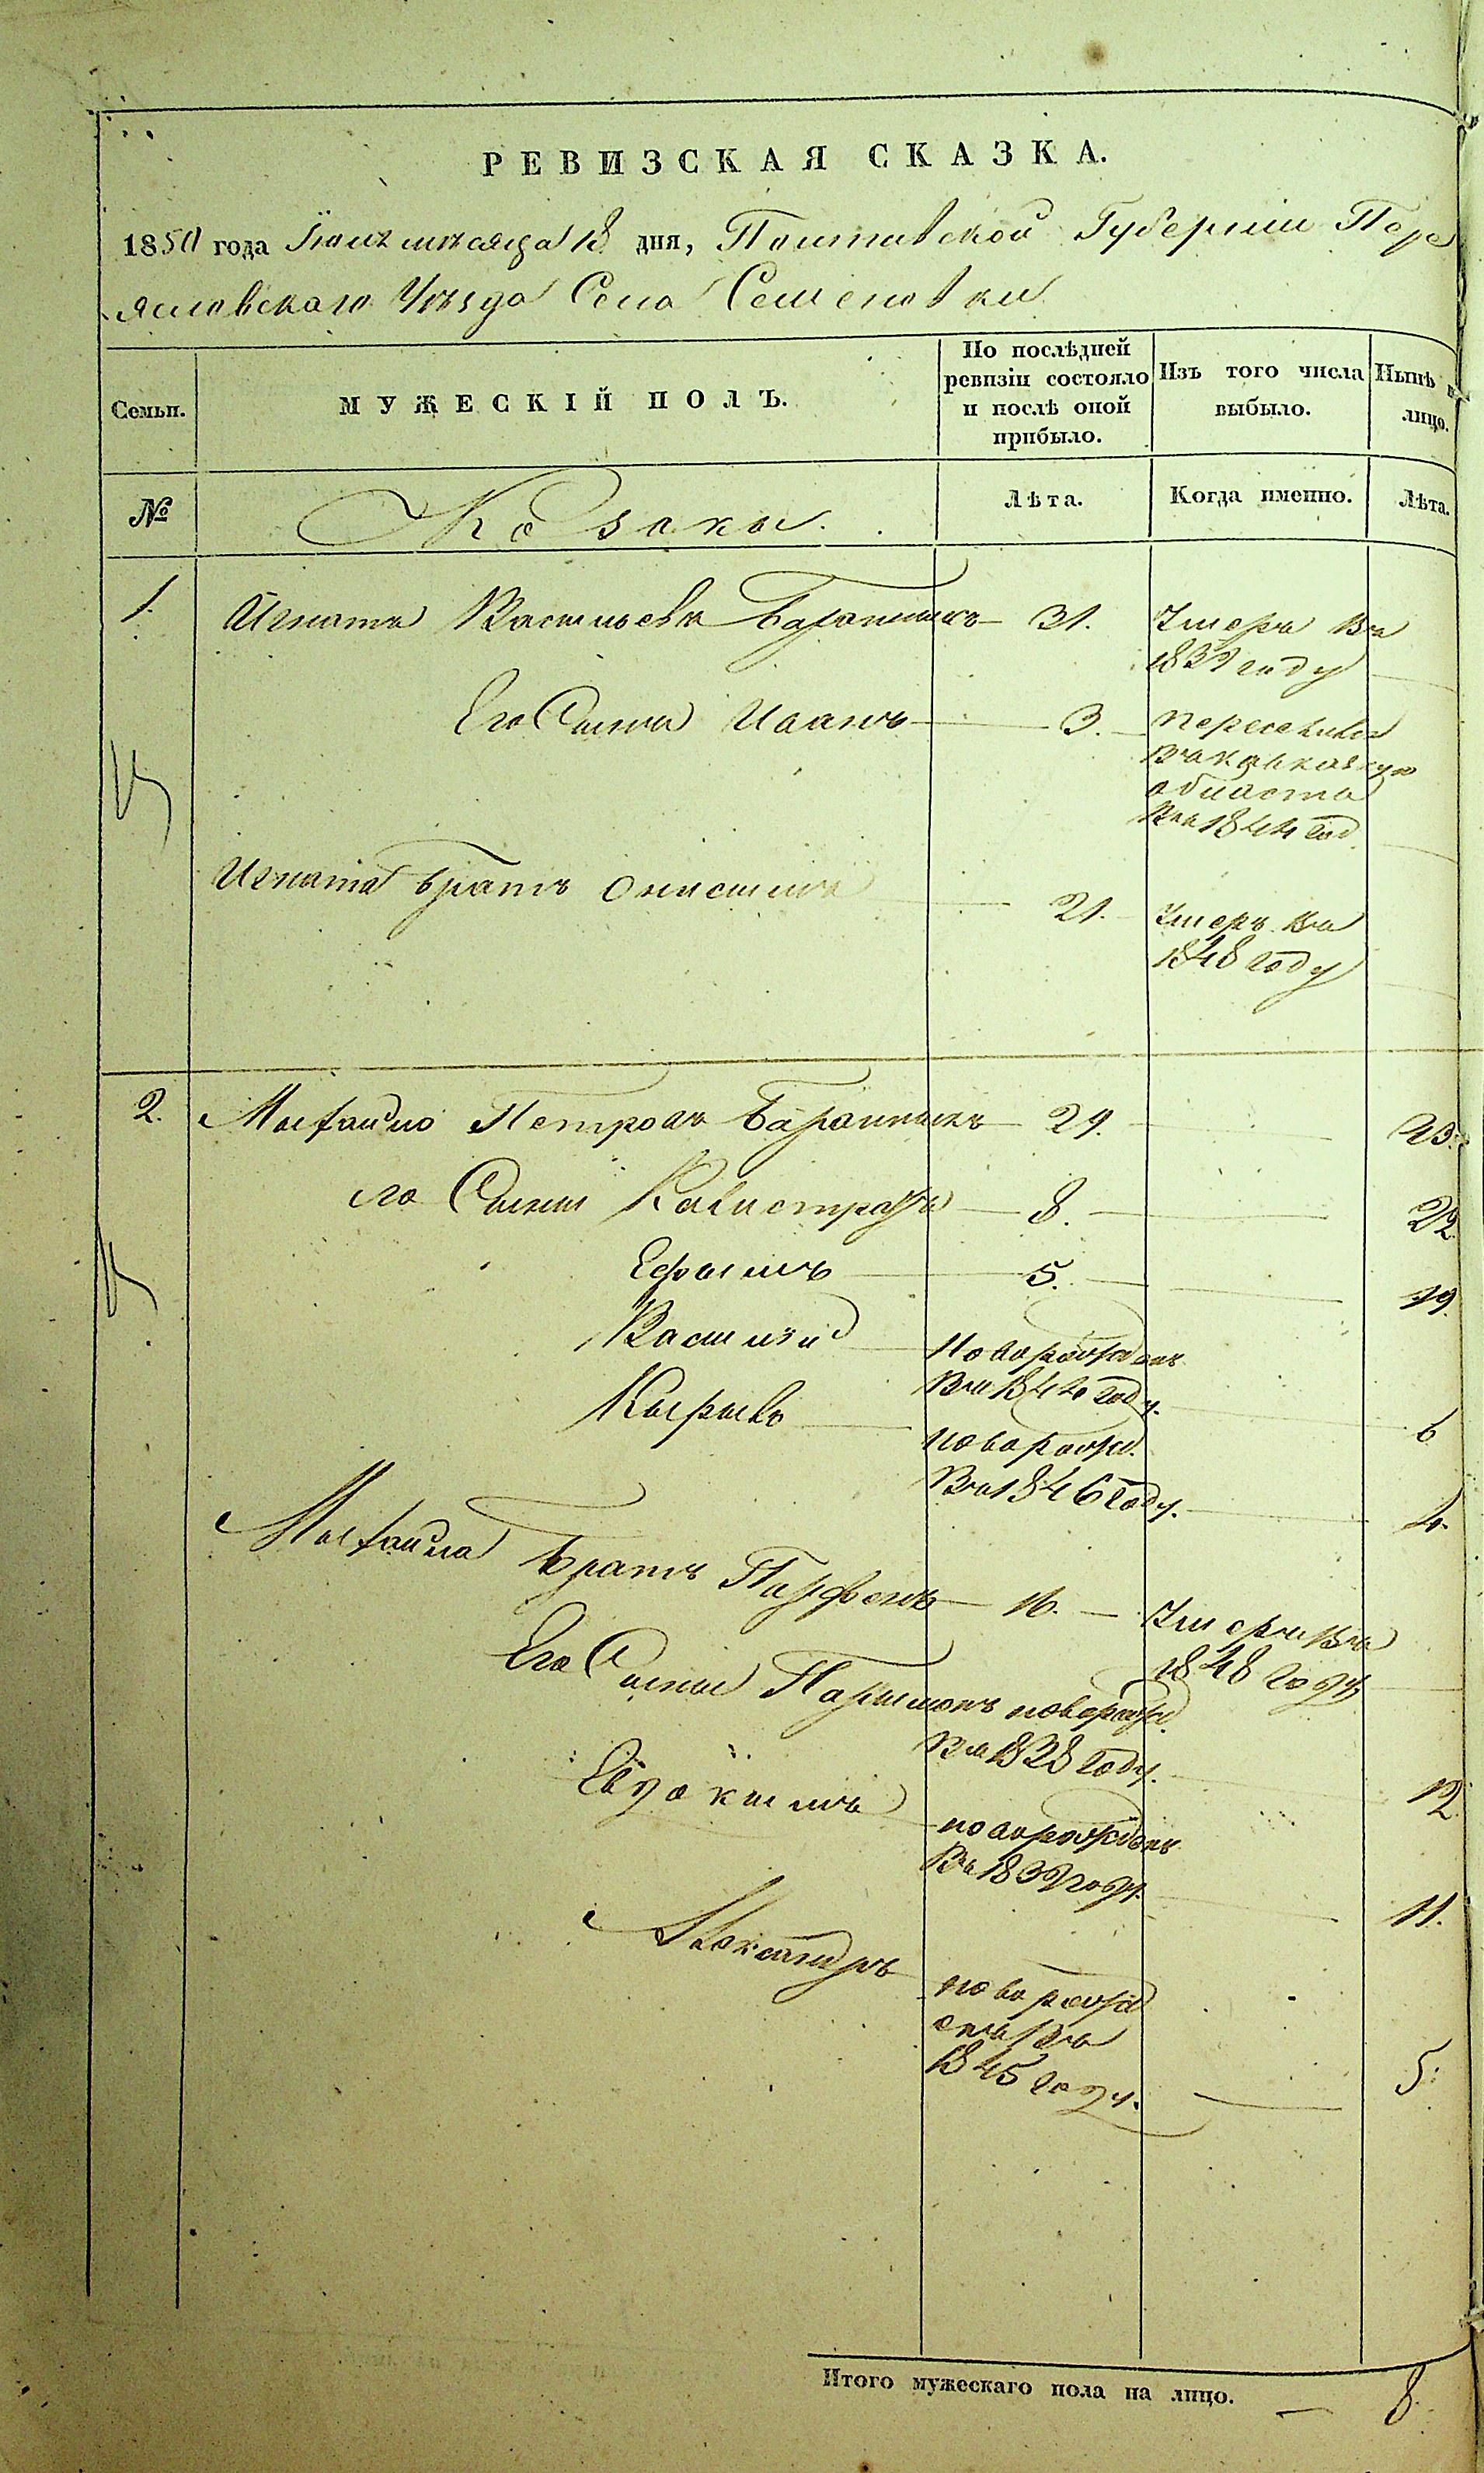 РЕВИЗСКАЯ СКАЗКА.
1850 года Іюля мѣсяца 18 дня, Полтавской Губерніи Пере
яславскаго Уѣзда Села Семеновки
Семьи.
МУЖЕСКІЙ ПОЛЪ.
По послѣдней ревизіи состояло и послѣ оной прибыло.
Изъ того числа выбыло.
Нынѣ на лицо.
№
Козаки.
Лѣта.
Когда именно.
Лѣта.
1. Игнатъ Васильевъ 31. Умеръ въ
1839 году
Его Сынъ Иванъ 3. переселился
въ Кавказкую
область
въ 1844 год
Игната братъ Онисимъ 21. Умеръ въ
1848 году
2. Михайло Петровъ 29.
его Сыны Калистратъ 8. 22.
Ефимъ 5. 19.
Василій новорожденъ
въ 1844 году. 6
Кирилъ новорожд.
въ 1846 году. 4.
Михайла братъ Парфенъ 16. Умеръ въ
1848 году
Его Сыны новорожд.
въ 1838 году. 12
Евдокимъ новорожденъ
въ 1839 году. 11.
Александръ новорожд
енъ въ
1845 году. 5.
Итого мужескаго пола на лицо. — 8.